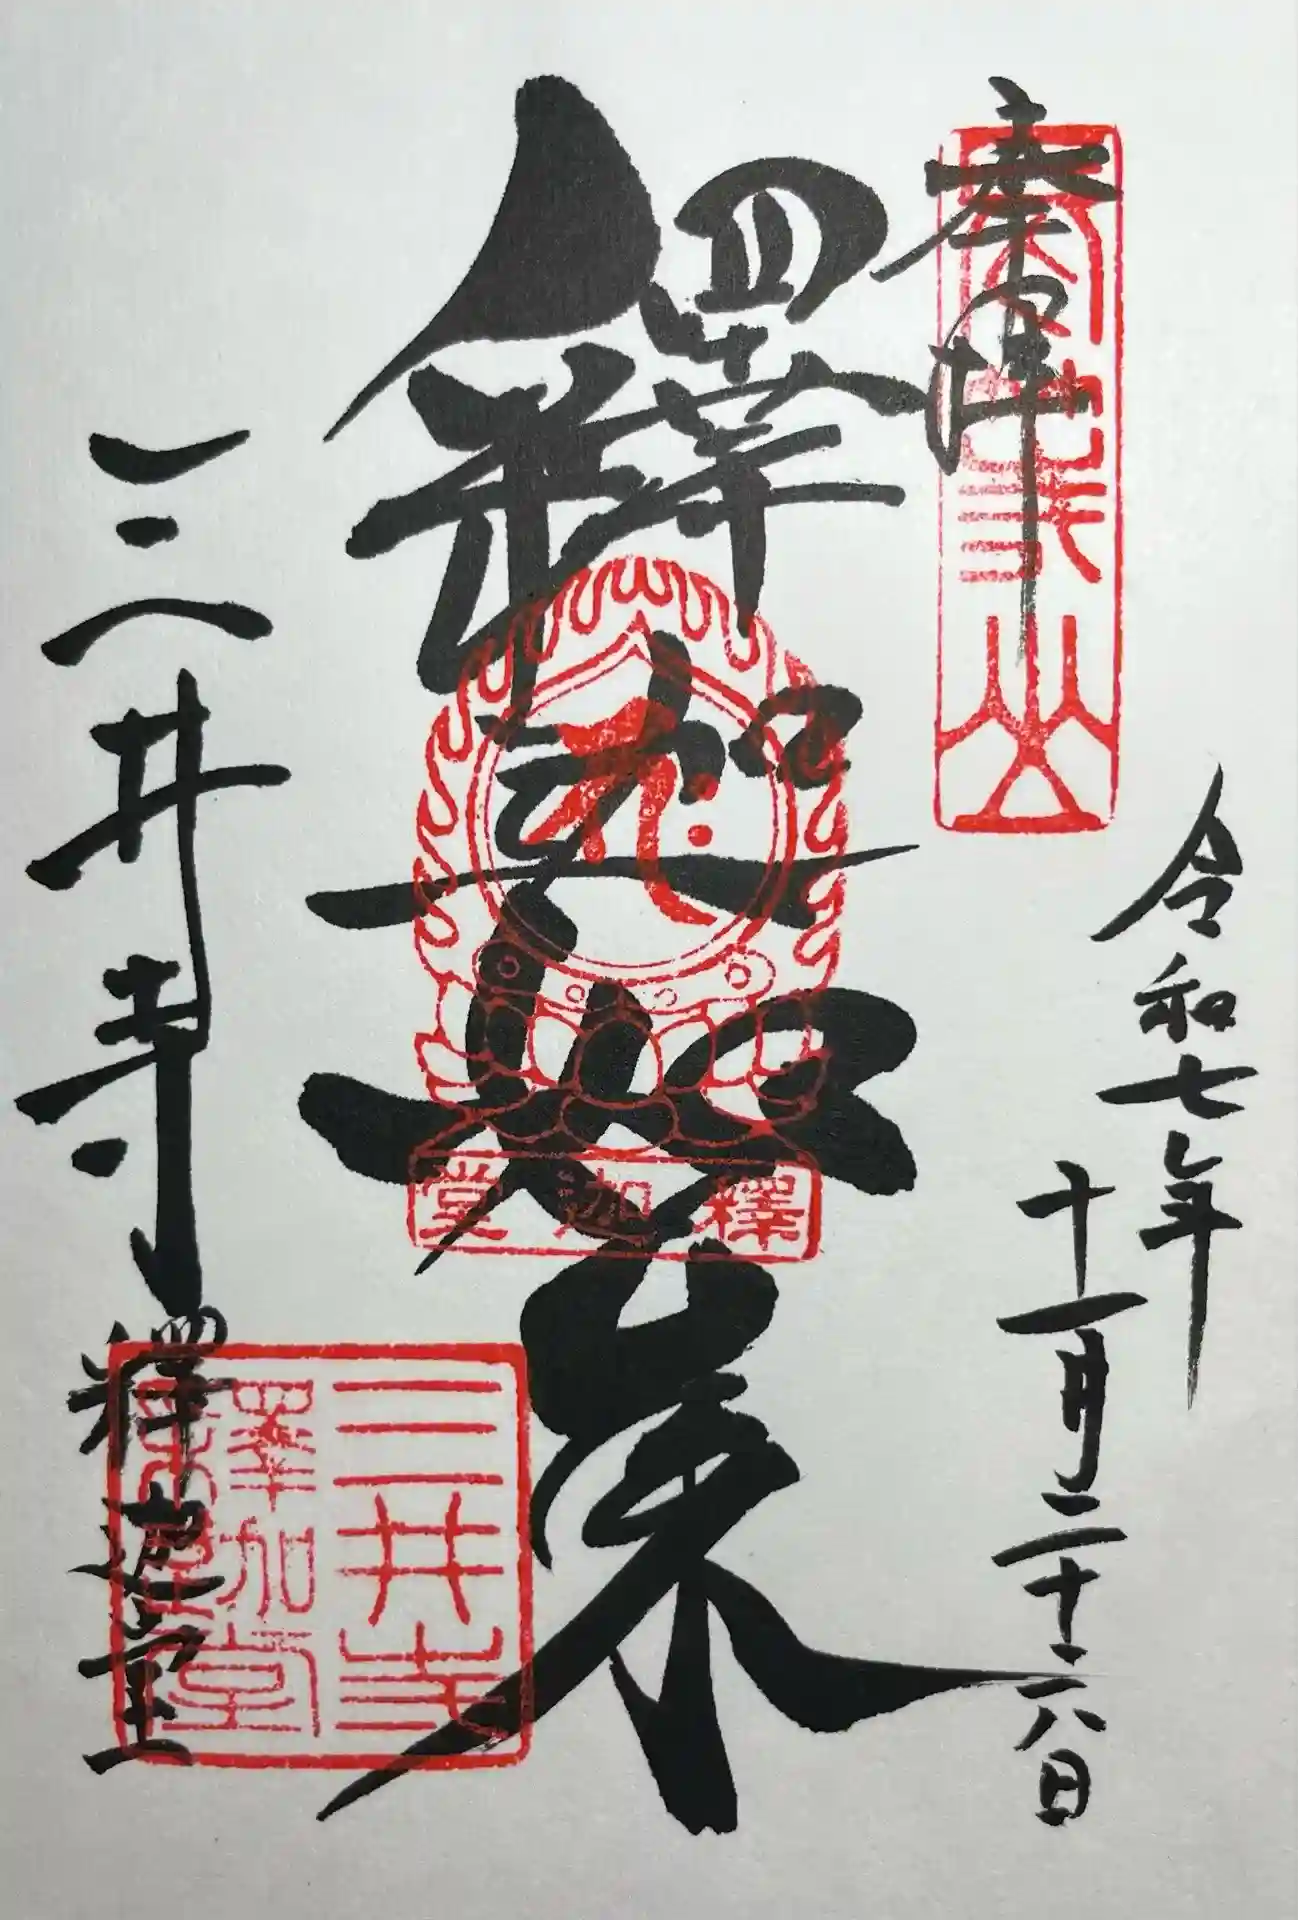 奉拝
長等山
令和七年
十一月二十六日
釋迦如来
釋迦堂
三井寺
釋迦堂
三井寺
釋迦堂